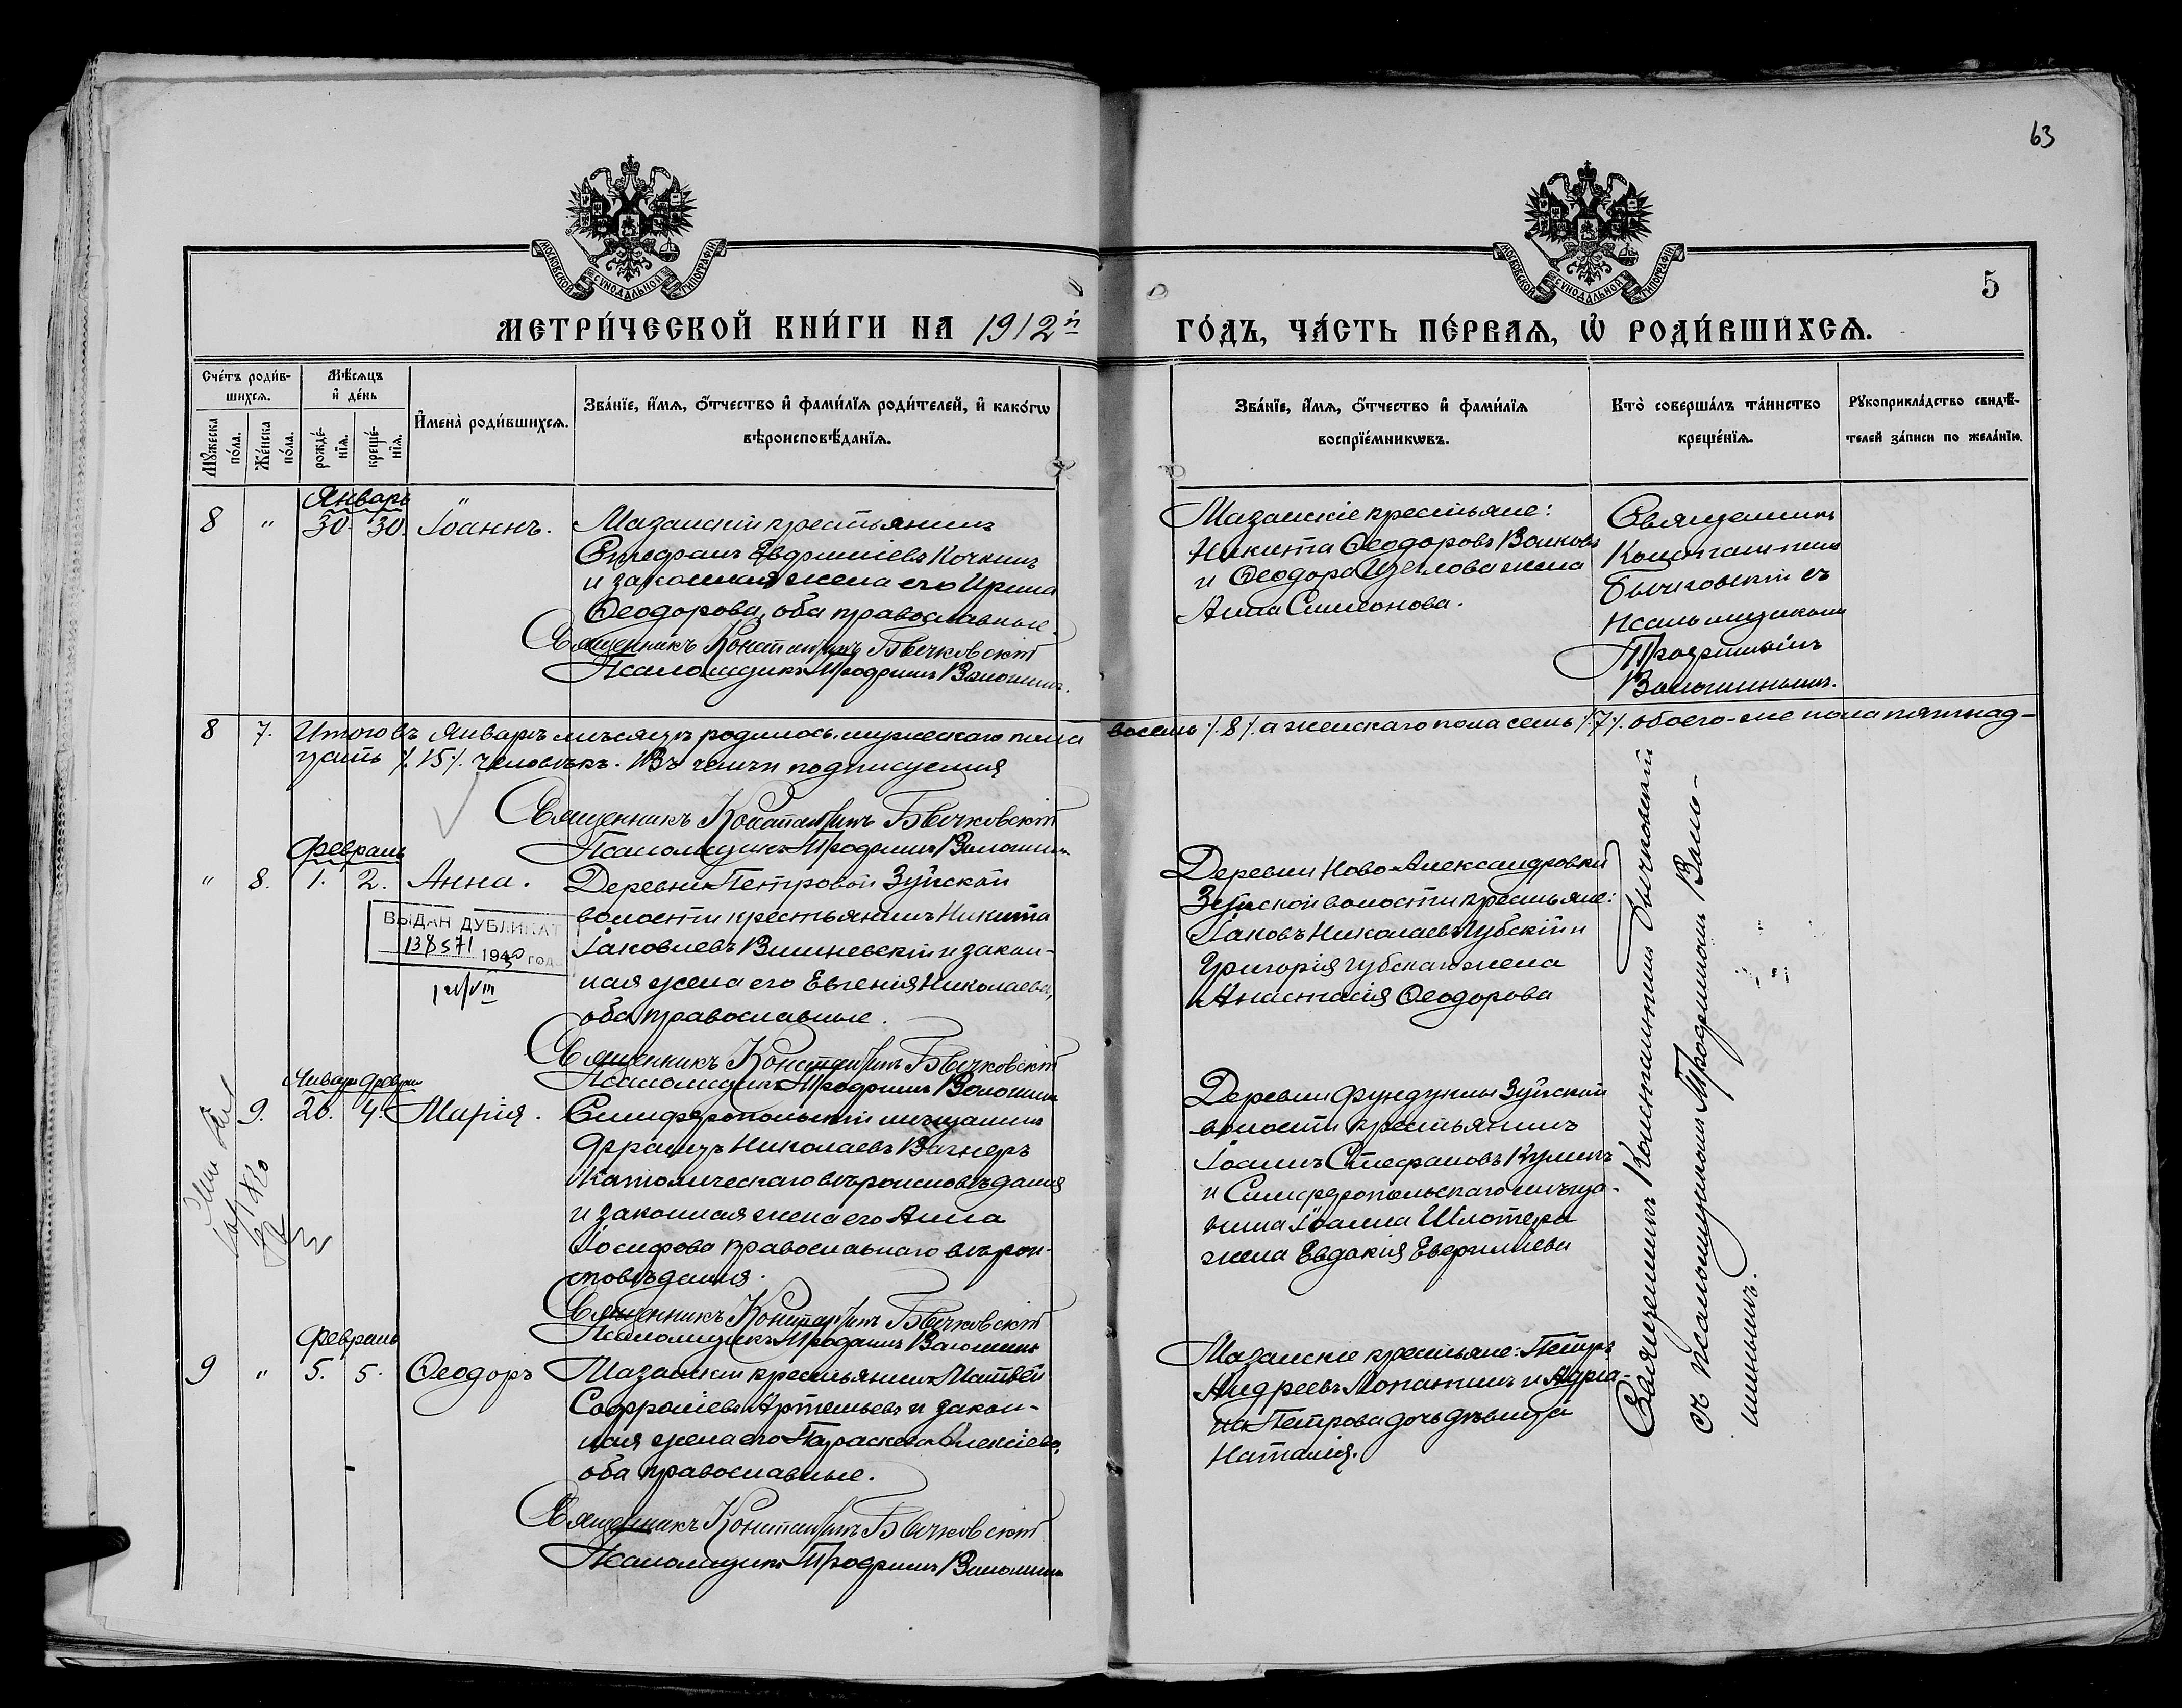 63
МОСКОВСКОЙ СѴНОДАЛЬНОЙ ТИПОГРАФІИ.
МОСКОВСКОЙ СѴНОДАЛЬНОЙ ТИПОГРАФІИ.
5
МЕТРИ́ЧЕСКОЙ КНИ́ГИ НА 1912й
ГО́ДЪ, ЧА́СТЬ ПЕ́РВАѦ, Ѽ РОДИ́ВШИХСѦ.
Сче́тъ роди́в-
шихсѧ.
Мꙋ́жеска по́ла.
Же́нска по́ла.
Мѣ́сѧцъ
и҆ де́нь
рожде́-
нїѧ.
креще́-
нїѧ.
И҆мена̀ роди́вшихсѧ.
Зва́нїе, и҆́мѧ, ѻ҆́тчество и҆ фами́лїѧ роди́телей, и҆ како́гѡ
вѣроисповѣ́данїѧ.
Зва́нїе, и҆́мѧ, ѻ҆́тчество и҆ фами́лїѧ
воспрїе́мникѡвъ.
Кто̀ соверша́лъ та́инство
креще́нїѧ.
Рꙋкоприкла́дство свидѣ́-
телей за́писи по жела́нїю.
Январь
8 " 30. 30. Іоаннъ.
Мазанскій крестьянинъ
Стефанъ Евфиміевъ Кочкинъ
и законная жена его Ирина
Ѳеодорова, оба православные.
Священникъ Константинъ Бычковскій
Псаломщикъ Трофимъ Волошинъ.
Мазанскіе крестьяне:
Никита Ѳеодоровъ Волковъ
и Ѳеодора жена
Анна Симеонова.
Священникъ
Константинъ
Бычковскій съ
псаломщикомъ
Трофимомъ
Волошинымъ.
8 7. Итого въ Январѣ мѣсяцѣ родилось мужескаго пола восемь /.8/. а женскаго пола семь /.7/. обоего-же пола пятнад-
цать /.15/. человѣкъ. Въ чемъ и подписуемся
Священникъ Константинъ Бычковскій
Псаломщикъ Трофимъ Волошинъ
Февраль
" 8. 1. 2. Анна.
Деревни Петровой Зуйской
волости крестьянинъ Никита
Іаковлевъ Вишневскій и закон-
ная жена его Евгенія Николаева,
оба православные.
Священникъ Константинъ Бычковскій
Псаломщикъ Трофимъ Волошинъ
ВЫДАН ДУБЛИКАТ
138571 1940 года
Деревни Ново-Александровки
Зуйской волости крестьяне:
Іаковъ Николаевъ Губскій и
Григорія Губскаго жена
Анастасія Ѳеодорова
Январь Февраль
9. 26. 4. Марія.
Симферопольскій мѣщанинъ
Францъ Николаевъ Вагнеръ
Католическаго вѣроисповѣданія
и законная жена его Анна
Іосифова православнаго вѣрои-
сповѣданія.
Священникъ Константинъ Бычковскій
Псаломщикъ Трофимъ Волошинъ
Деревни Фундуклы Зуйской
волости крестьянинъ
Іоаннъ Стефановъ
и Симферопольскаго мѣща-
нина Іоанна Шлотера
жена Евдокія Евфиміева
Февраль
9 " 5. 5. Ѳеодоръ
Мазанскій крестьянинъ Матвѣй
Софроніевъ Артемьевъ и закон-
ная жена его Параскева Алексіева,
оба православные.
Священникъ Константинъ Бычковскій
Псаломщикъ Трофимъ Волошинъ
Мазанскіе крестьяне: Петръ
Андреевъ Лопатинъ и Адріа-
на Петрова дочь дѣвица
Наталія.
Священникъ Константинъ Бычковскій
съ псаломщикомъ Трофимомъ Воло-
шинымъ.